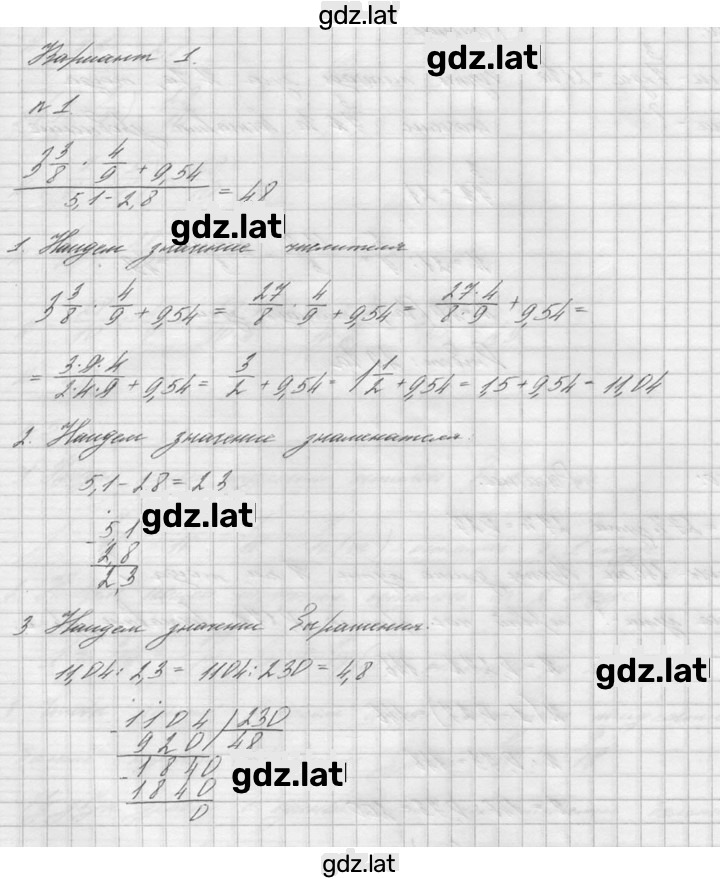 gdz.lat
Вариант 1.
gdz.lat
n 1.
3 3/8 · 4/9 + 9,54
5,1 - 2,8 = 48
gdz.lat
1. Найдем значение числителя
3 3/8 · 4/9 + 9,54 = 27/8 · 4/9 + 9,54 = 27·4/8·9 + 9,54 =
= 3·9·4/2·4·9 + 9,54 = 3/2 + 9,54 = 1 1/2 + 9,54 = 1,5 + 9,54 = 11,04
2. Найдем значение знаменателя.
5,1 - 2 8 = 2 3
gdz.lat
- 5,1
2,8
2,3
3 Найдем значение выражения.
11,04 : 2,3 = 1104 : 230 = 4,8
gdz.lat
- 1104 230
920 48
- 1840
gdz.lat
1840
0
gdz.lat